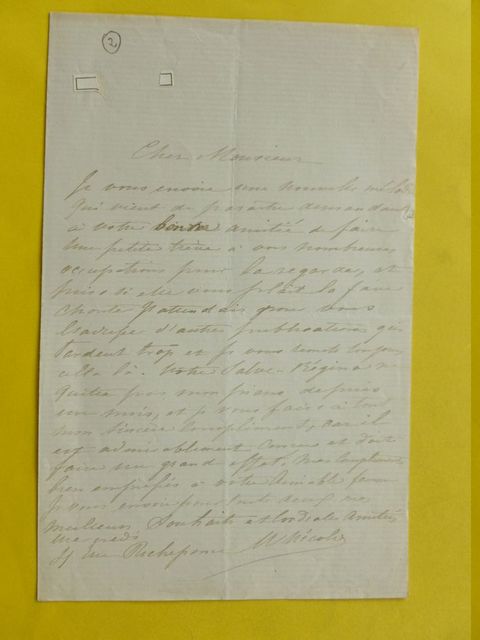 2
Cher Monsieur
Je vous envoie une nouvelle mélodie
qui vient de paraître demandant
à votre bonne amitié de faire
une petite trève à vos nombreuses
occupations pour la regarder, et
puis si elle vous plaît la faire
chanter. J'attendais pour vous
d'autres publications qui
tardent trop et je vous
cella là. Votre Salve Regina ne
quitte pas mon piano depuis
un mois, et je vous fais à tous
mon sincère compliment, car il
est admirablement conçu et doit
faire un grand effet. Mes compliments
bien empressés à votre aimable femme
je vous envoie pour tous deux mes
meilleurs souhaits et cordiale amitié,
mercredi
rue Richepanse